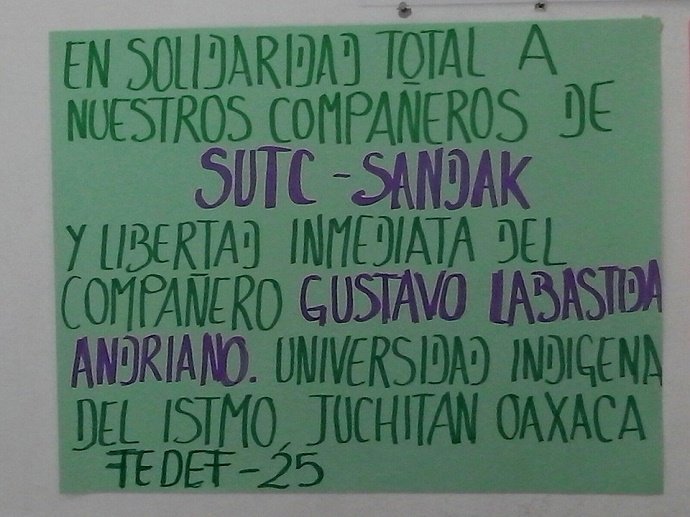 EN SOLIDARIDAD TOTAL A
NUESTROS COMPAÑEROS DE
SUTC - SANDAK
Y LIBERTAD INMEDIATA DEL
COMPAÑERO GUSTAVO LABASTIDA
ANDRIANO. UNIVERSIDAD INDIGENA
DEL ISTMO, JUCHITAN OAXACA
FEDEF-25